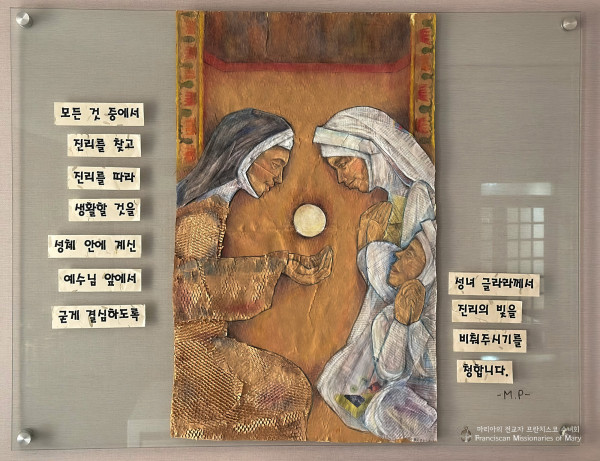 모든 것 중에서
진리를 찾고
진리를 따라
생활할 것을
성체 안에 계신
예수님 앞에서
굳게 결심하도록
성녀 글라라께서
진리의 빛을
비춰주시기를
청합니다.
-M.P-
마리아의 전교자 프란치스코 수녀회
Franciscan Missionaries of Mary